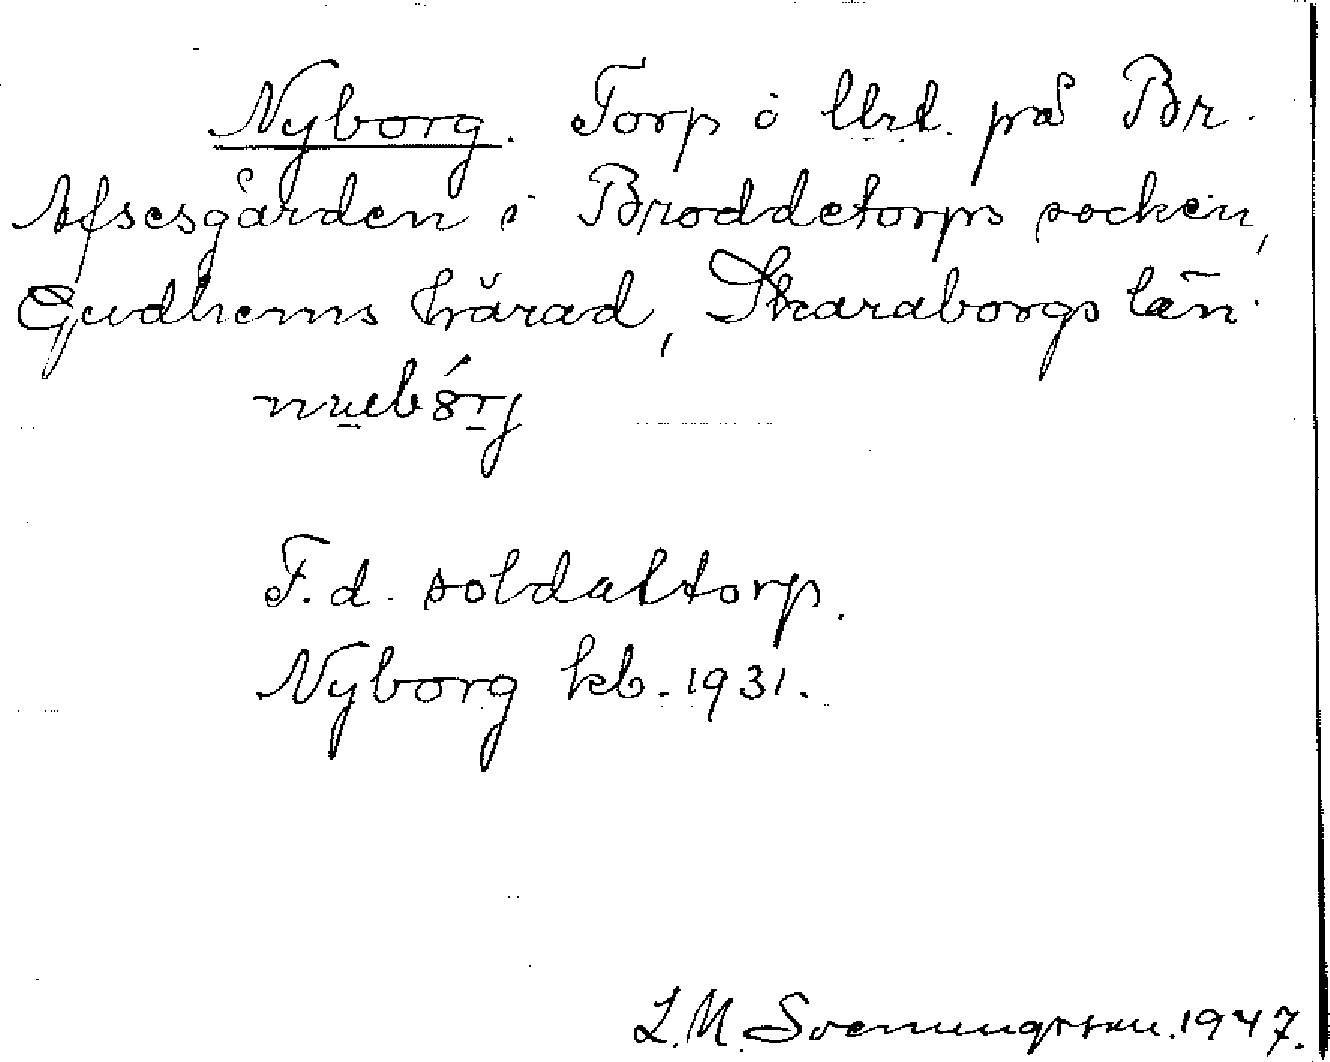 Nyborg. Torp i Utr. på Br.
Afsesgården i Broddetorps socken,
Gudhems härad, Skaraborgs län.
F.d. soldattorp.
Nyborg kb. 1931.
L.M. Svenungsson. 1947.